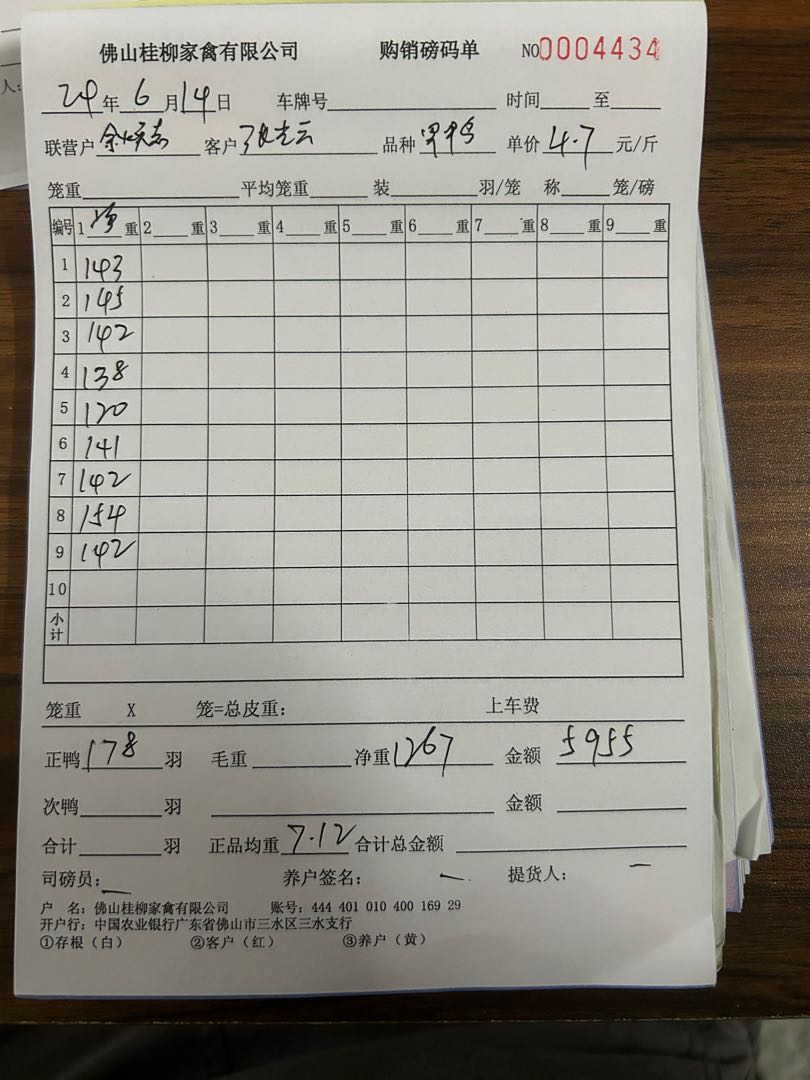 佛山桂柳家禽有限公司 购销磅码单 NO0004434
24年6月14日 车牌号 时间 至
联营户 余 志 客户 张志云 品种 单价4.7元/斤
笼重 平均笼重 装 羽/笼 称 笼/磅
编号 1净重 2 重 3 重 4 重 5 重 6 重 7 重 8 重 9 重
1 143
2 145
3 142
4 138
5 120
6 141
7 142
8 154
9 142
10
小计
笼重 X 笼=总皮重： 上车费
正鸭178羽 毛重 净重1267 金额 5955
次鸭 羽 金额
合计 羽 正品均重7.12 合计总金额
司磅员： 养户签名： 提货人：
户 名：佛山桂柳家禽有限公司 账号：444 401 010 400 169 29
开户行：中国农业银行广东省佛山市三水区三水支行
①存根（白） ②客户（红） ③养户（黄）
人：